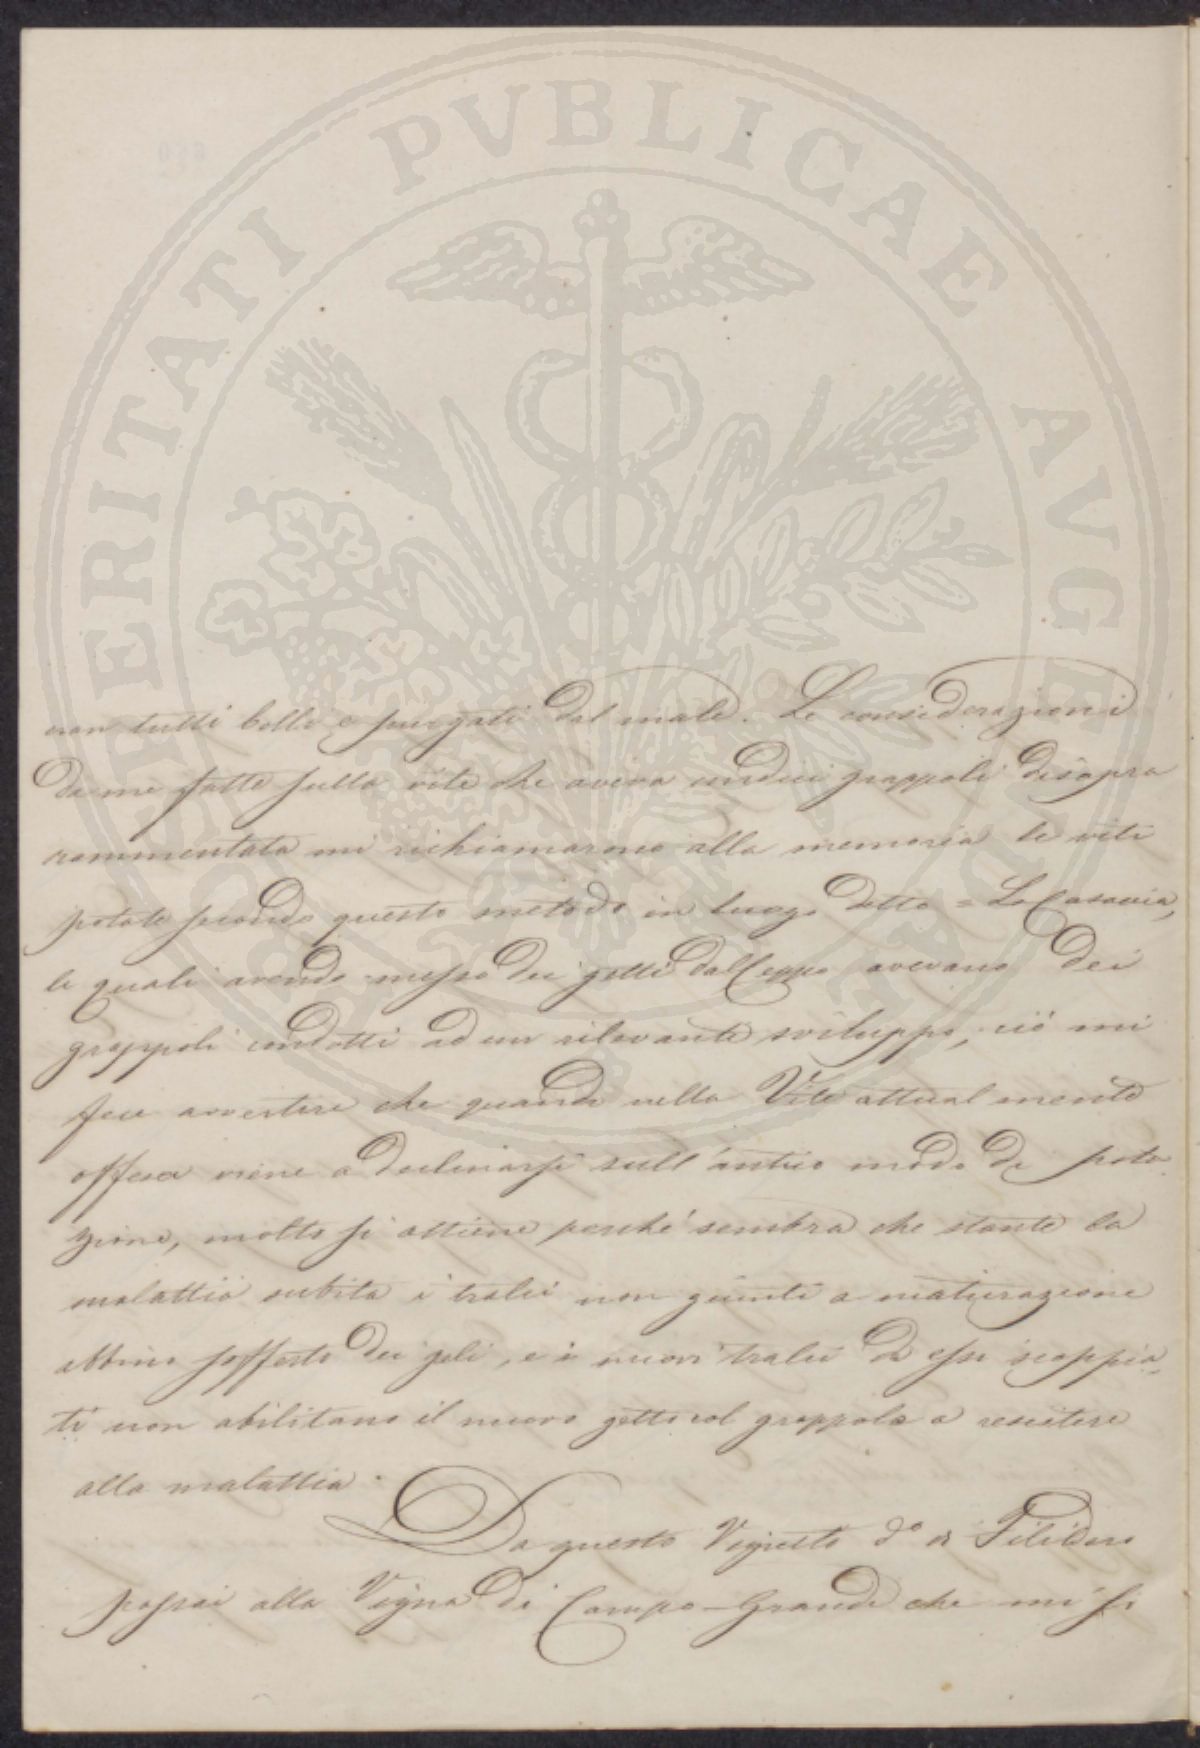 PVBLICAE
non tutti belli e purgati dal male. Le considerazioni
da me fatte sulla vite che aveva undici grappoli disopra
rammentata mi richiamarono alla memoria le viti
potate secondo questo metodo in luogo detto = La Casaccia,
le quali avendo messo dei getti dal Ceppo avevano dei
grappoli condotti ad un rilevante sviluppo, ciò mi
fece avvertire che quando nella Vite attualmente
offesa viene a declinarsi sull'antico modo di pota-
zione, molto si ottiene perché sembra che stante la
malattia subita i tralci non giunti a maturazione
abbino sofferto dei geli, e i nuovi tralci da essi scoppia-
ti non abilitano il nuovo getto col grappolo a resistere
alla malattia.
Da questo Vigneto d.o di
passai alla Vigna di Campo-Grande che mi si